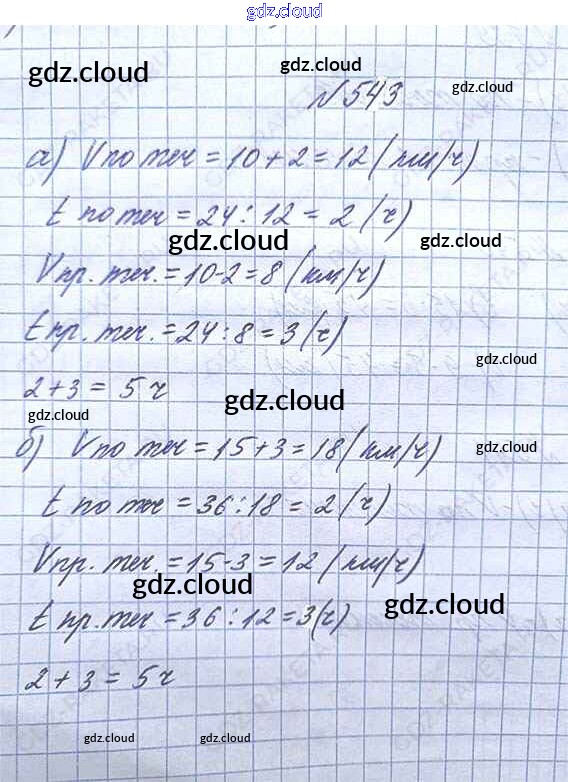 gdz.cloud
gdz.cloud
gdz.cloud
gdz.cloud
№543
а) Vпо теч = 10 + 2 = 12 (км/ч)
t по теч = 24 : 12 = 2 (ч)
gdz.cloud
gdz.cloud
Vпр. теч. = 10-2 = 8 (км/ч)
tпр. теч. = 24 : 8 = 3 (ч)
gdz.cloud
2 + 3 = 5 ч
gdz.cloud
gdz.cloud
б) Vпо теч = 15 + 3 = 18 (км/ч)
gdz.cloud
t по теч = 36 : 18 = 2 (ч)
Vпр. теч. = 15-3 = 12 (км/ч)
gdz.cloud
gdz.cloud
t пр. теч = 36 : 12 = 3(ч)
2 + 3 = 5ч
gdz.cloud
gdz.cloud